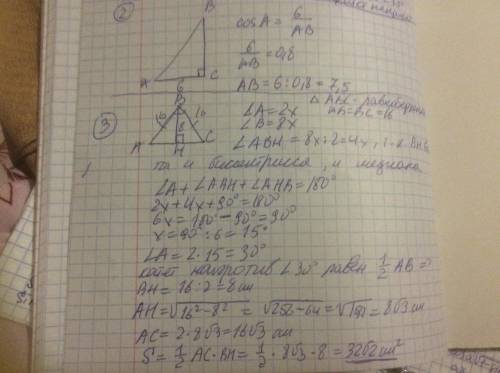 ②
B
cosA = 6/AB
6/AB = 0,8
A
C
6
AB = 6 : 0,8 = 7,5
③
B
16
16
8
A
H
C
Δ ABC - равнобедрен
AB=BC=16
∠A = 2x
∠B = 8x
∠ABH = 8x : 2 = 4x, т.к. BH
и биссектриса, и медиана
∠A + ∠ABH + ∠AHB = 180°
2x + 4x + 90° = 180°
6x = 180° - 90° = 90°
x = 90° : 6 = 15°
∠A = 2·15 = 30°
катет напротив ∠30° равен 1/2 AB ⇒
AH = 16 : 2 = 8 см
AH = √16² - 8² = √256 - 64 = √192 = 8√3 см
AC = 2·8√3 = 16√3 см
S = 1/2 AC·BH = 1/2 · 8√3 · 8 = 32√2 см²